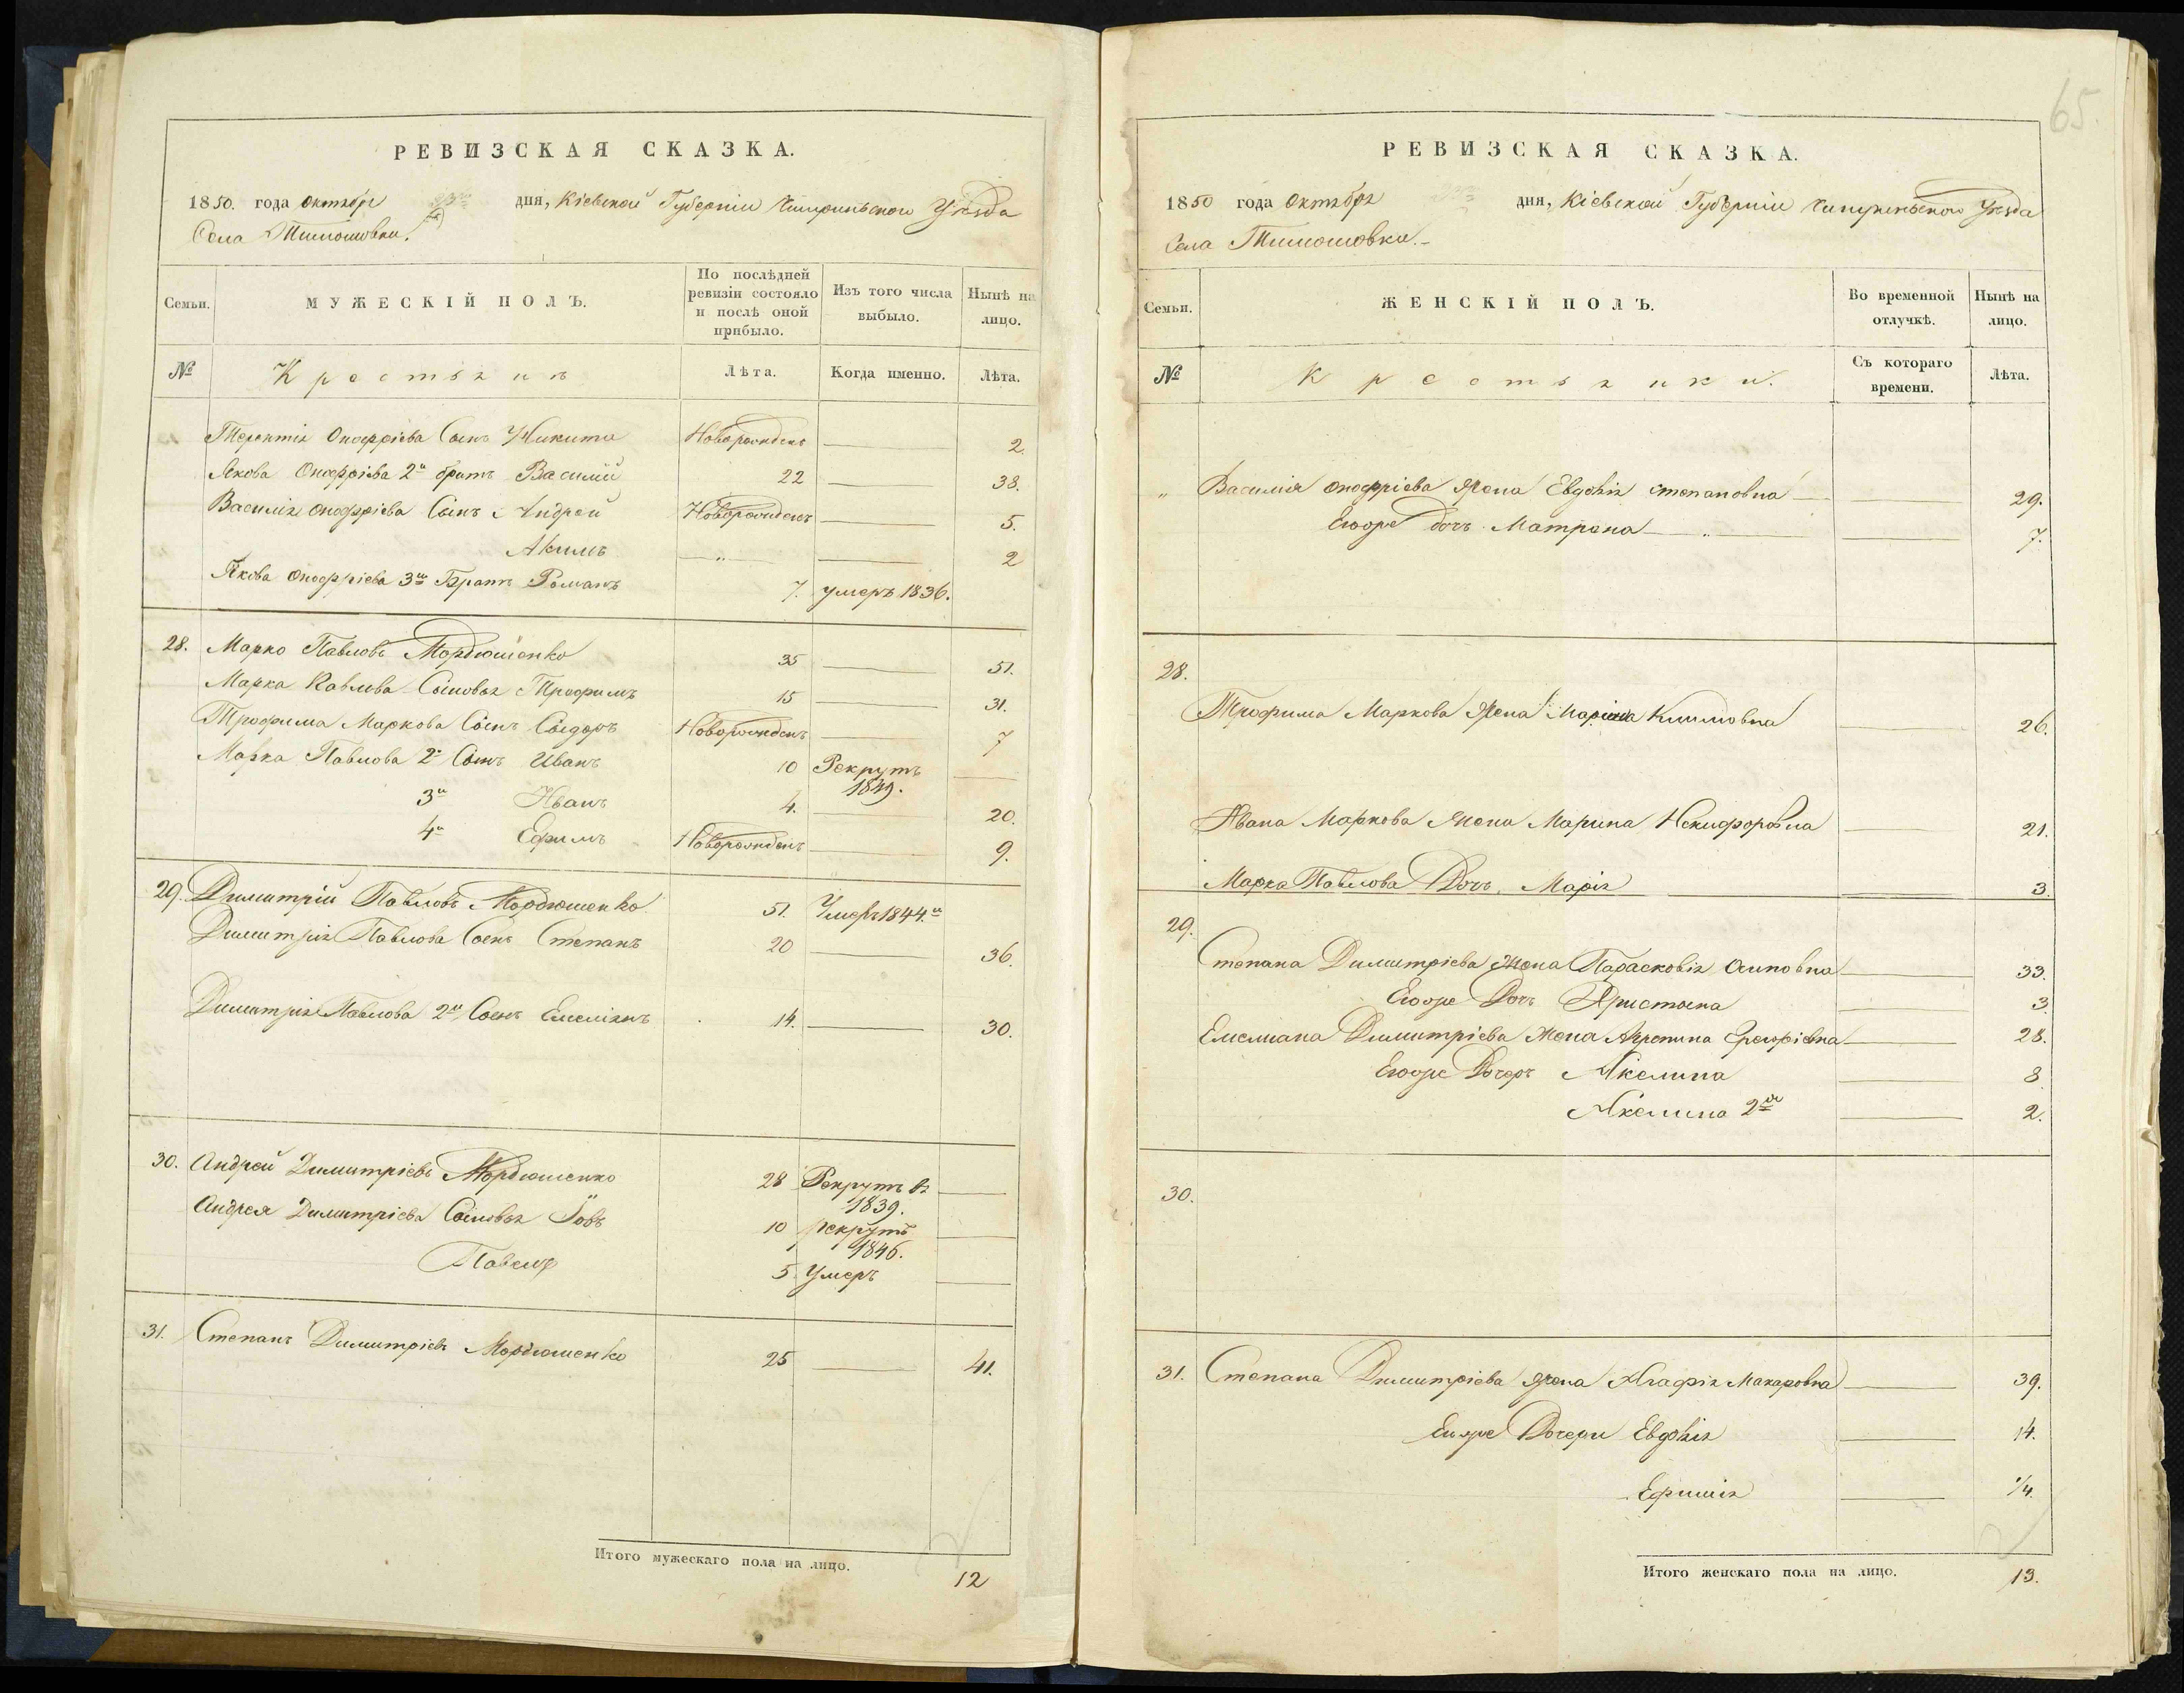 РЕВИЗСКАЯ СКАЗКА.
1850. года Октября дня, Кіевской Губерніи Чигиринского Уѣзда
Села Тимошовки.
Семьи. МУЖЕСКІЙ ПОЛЪ. По послѣдней ревизіи состояло и послѣ оной прибыло. Изъ того числа выбыло. Нынѣ на лицо.
№ Крестьянъ Лѣта. Когда именно. Лѣта.
Терентія Онофріева Сынъ Никита Новорожденъ 2.
Якова Онофріева 2й братъ Василій 22 38.
Василія Онофріева Сынъ Андрей Новорожденъ 5.
Акимъ " 2
Якова Онофріева 3й Братъ Романъ 7. умеръ 1836.
28. Марко Павловъ Мордюшенко 35 51.
Марка Павлова Сыновья Трофимъ 15 31.
Трофима Маркова Сынъ Сыдоръ Новорожденъ 7
Марка Павлова 2й Сынъ Иванъ 10 Рекрутъ 1849.
3й Иванъ 4. 20.
4й Ефимъ Новорожденъ 9.
29. Димитрій Павловъ Мордюшенко 51. Умеръ 1844.го
Димитрія Павлова Сынъ Степанъ 20 36.
Димитрія Павлова 2й Сынъ Емеліянъ 14. 30.
30. Андрей Димитріевъ Мордюшенко 28 Рекрутъ въ 1839.
Андрея Димитріева Сыновья Іовъ 10 рекрутъ 1846.
Павелъ 5 Умеръ
31. Степанъ Димитріевъ Мордюшенко 25 41.
Итого мужескаго пола на лицо. 12
65.
РЕВИЗСКАЯ СКАЗКА.
1850 года Октября дня, Кіевской Губерніи Чигиринского Уѣзда
Села Тимошовки.
Семьи. ЖЕНСКІЙ ПОЛЪ. Во временной отлучкѣ. Нынѣ на лицо.
№ Крестьянки. Съ котораго времени. Лѣта.
" Василія Онофріева Жена Евдокія Степановна 29.
Егоже дочь Матрона " 7.
28.
Трофима Маркова Жена Климовна 26.
Ивана Маркова Жена Марина Никифоровна 21.
Марка Павлова Дочь Марія 3.
29.
Степана Димитріева Жена Парасковія Осиповна 33.
Егоже Дочь Христына 3.
Емелиана Димитріева Жена Агрепина 28.
Егоже Дочерь Акелина 8
Акелина 2я 2.
30.
31. Степана Димитріева Жена Агафія Макаровна 39.
Егоже Дочери Евдокія 14.
Ефимія 1/4.
Итого женскаго пола на лицо. 13.